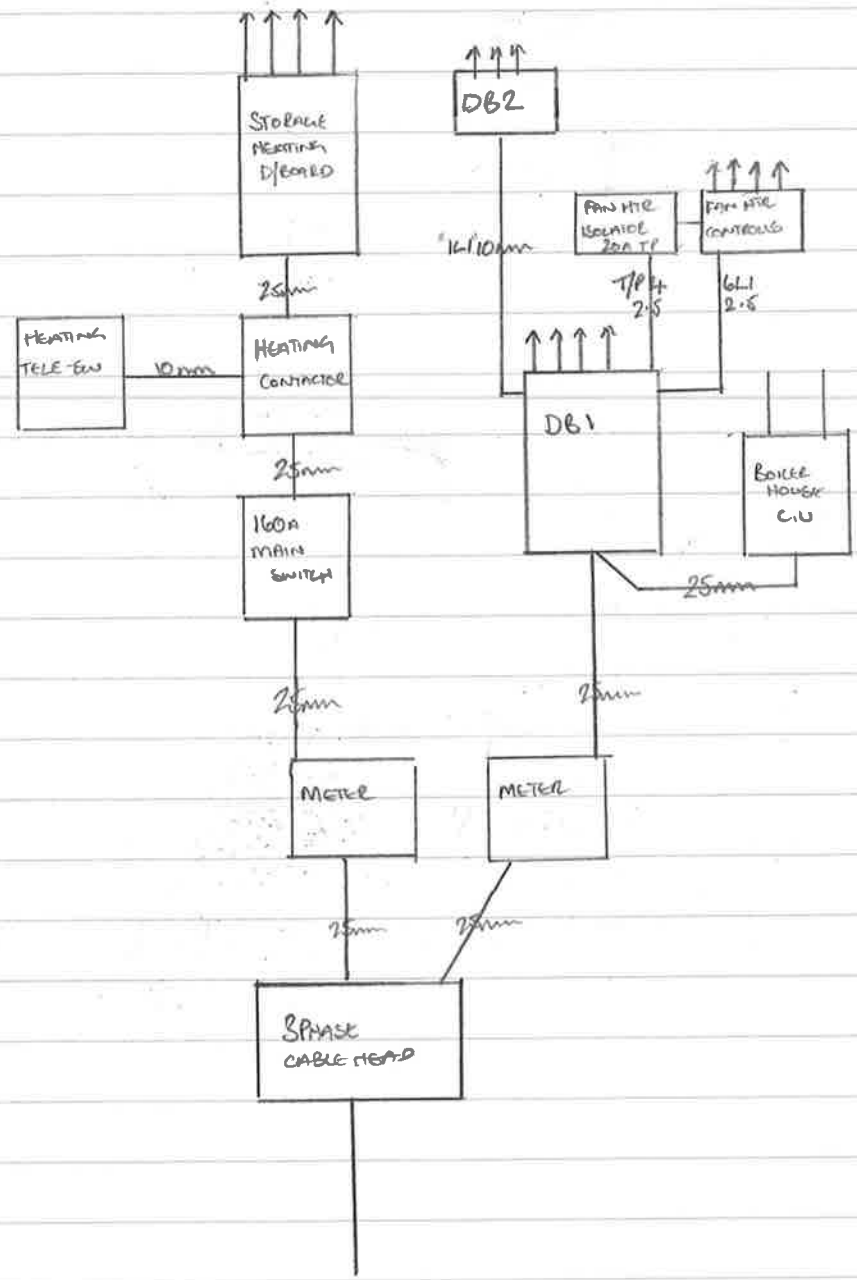 STORAGE
HEATING
D/BOARD
DB2
FAN HTR
ISOLATOR
20A TP
FAN HTR
CONTROLS
10mm
T/P 4
2.5
6L1
2.5
25mm
HEATING
TELE-SW
10mm
HEATING
CONTACTOR
DB1
25mm
BOILER
HOUSE
C.U
160A
MAIN
SWITCH
25mm
25mm
25mm
METER
METER
25mm
25mm
3PHASE
CABLE HEAD